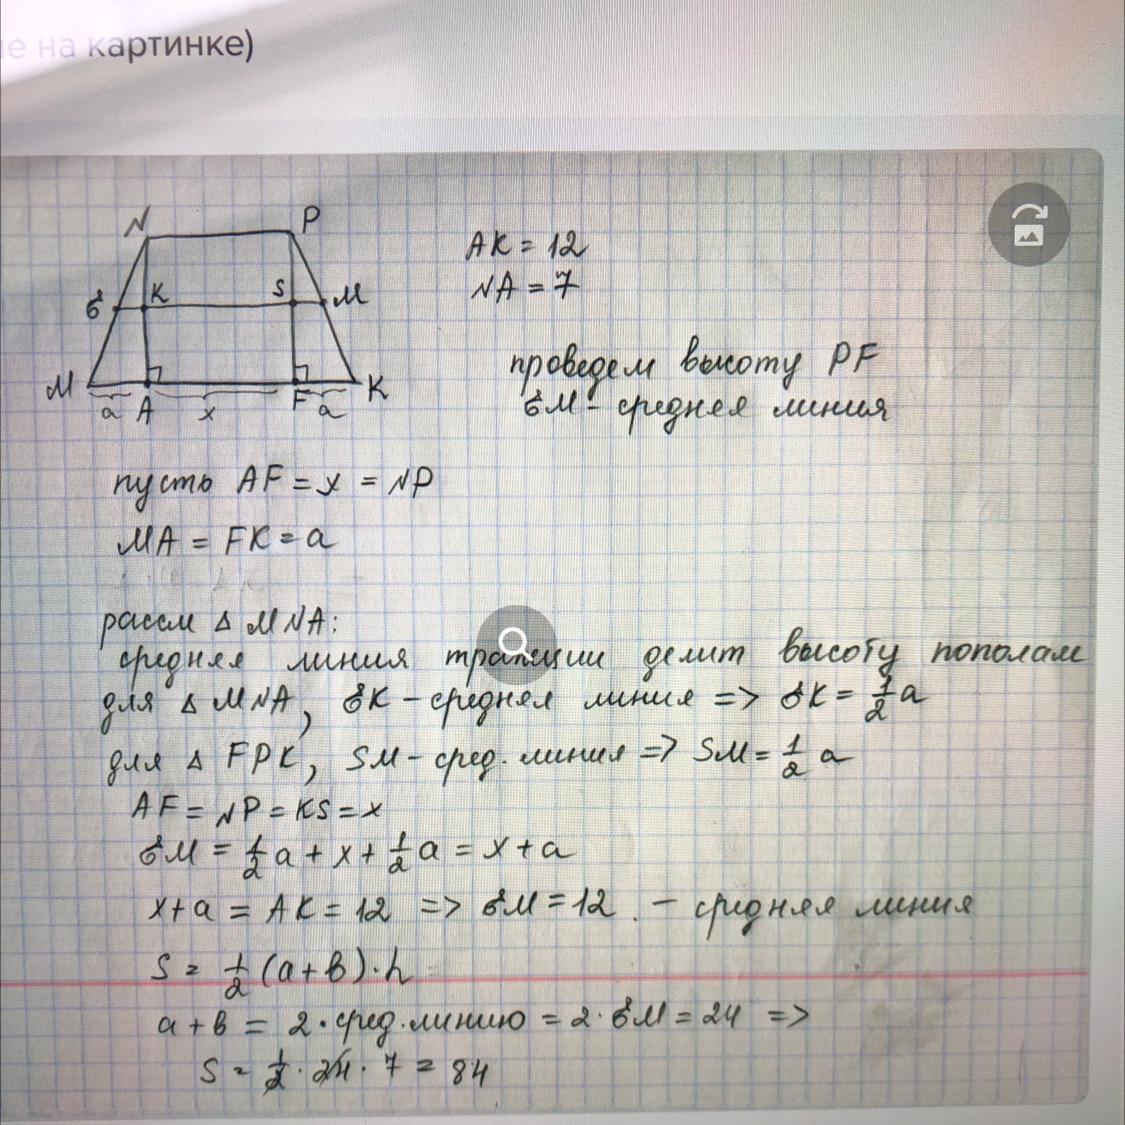 не на картинке)
N P
б K S M
M a A x F a K
AK = 12
NA = 7
проведем высоту PF
бM - средняя линия
пусть AF = x = NP
MA = FK = a
рассм △ MNA:
средняя линия трапеции делит высоту пополам
для △ MNA, бK - средняя линия => бK = 1/2 a
для △ FPK, SM - сред. линия => SM = 1/2 a
AF = NP = KS = x
бM = 1/2 a + x + 1/2 a = x + a
x + a = AK = 12 => бM = 12. - средняя линия
S = 1/2 (a + b) · h
a + b = 2 · сред. линию = 2 · бM = 24 =>
S = 1/2 · 24 · 7 = 84